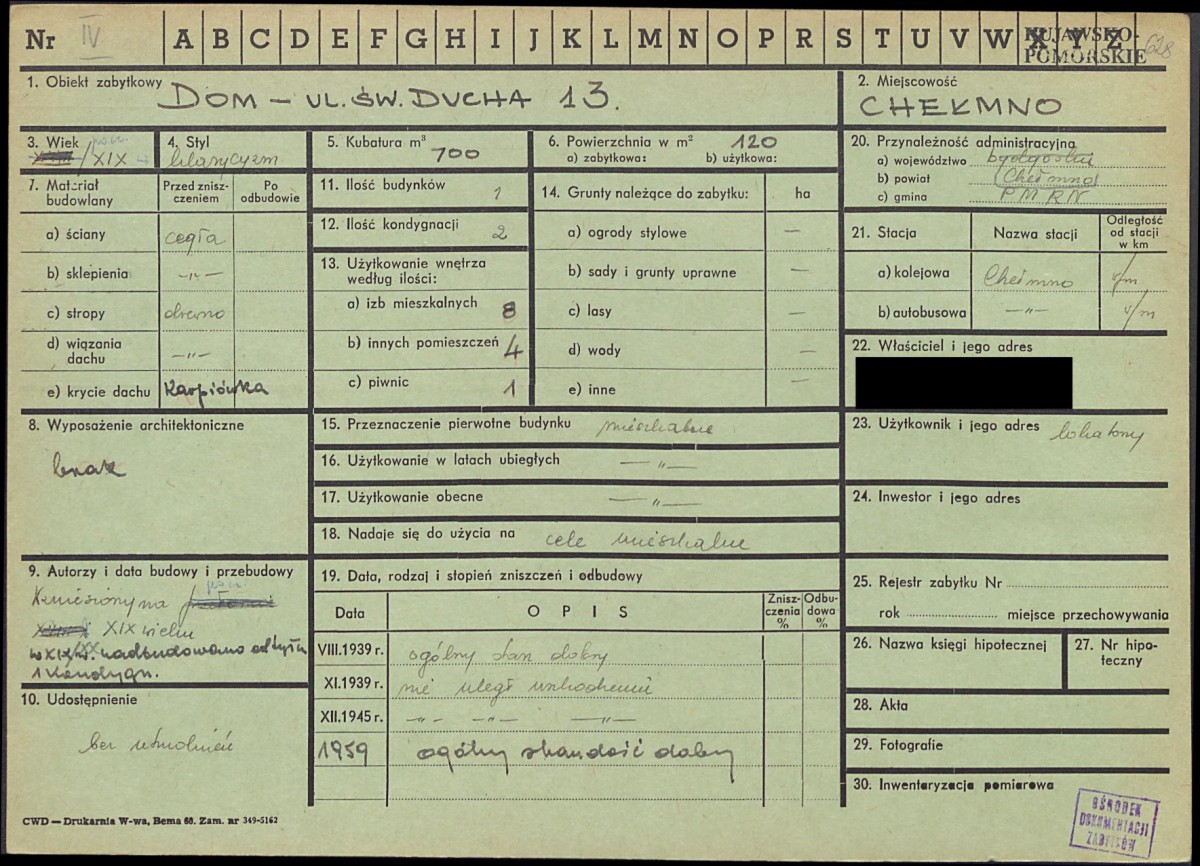 Nr IV A B C D E F G H I J K L M N O P R S T U V W X Y Z
KUJAWSKO-
POMORSKIE 628
1. Obiekt zabytkowy DOM – UL. ŚW. DUCHA 13.
2. Miejscowość
CHEŁMNO
3. Wiek
/XIX
4. Styl
klasycyzm
5. Kubatura m³
700
6. Powierzchnia w m² 120
a) zabytkowa: b) użytkowa:
7. Materiał budowlany
Przed zniszczeniem
Po odbudowie
a) ściany cegła
b) sklepienia –„–
c) stropy drewno
d) wiązania dachu –„–
e) krycie dachu Karpiówka
8. Wyposażenie architektoniczne
brak
9. Autorzy i data budowy i przebudowy
Wzniesiony na pocz.
XIX wieku
w XIX/XX w. nadbudowano od tyłu
1 kondygn.
10. Udostępnienie
bez utrudnień
11. Ilość budynków 1
12. Ilość kondygnacji 2
13. Użytkowanie wnętrza
według ilości:
a) izb mieszkalnych 8
b) innych pomieszczeń 4
c) piwnic 1
14. Grunty należące do zabytku: ha
a) ogrody stylowe –
b) sady i grunty uprawne –
c) lasy –
d) wody –
e) inne –
15. Przeznaczenie pierwotne budynku mieszkalne
16. Użytkowanie w latach ubiegłych –„–
17. Użytkowanie obecne –„–
18. Nadaje się do użycia na cele mieszkalne
19. Data, rodzaj i stopień zniszczeń i odbudowy
Data OPIS Zniszczenia % Odbudowa %
VIII.1939 r. ogólny stan dobry
XI.1939 r. nie uległ uszkodzeniu
XII.1945 r. –„– –„– –„–
1959 ogólny stan dość dobry
20. Przynależność administracyjna
a) województwo bydgoskie
b) powiat (Chełmno)
c) gmina PMRN
21. Stacja Nazwa stacji Odległość od stacji w km
a) kolejowa Chełmno v/m
b) autobusowa –„– v/m
22. Właściciel i jego adres
23. Użytkownik i jego adres lokatorzy
24. Inwestor i jego adres
25. Rejestr zabytku Nr
rok miejsce przechowywania
26. Nazwa księgi hipotecznej
27. Nr hipoteczny
28. Akta
29. Fotografie
30. Inwentaryzacja pomiarowa
OŚRODEK
DOKUMENTACJI
ZABYTKÓW
CWD — Drukarnia W-wa, Bema 60. Zam. nr 349-5162